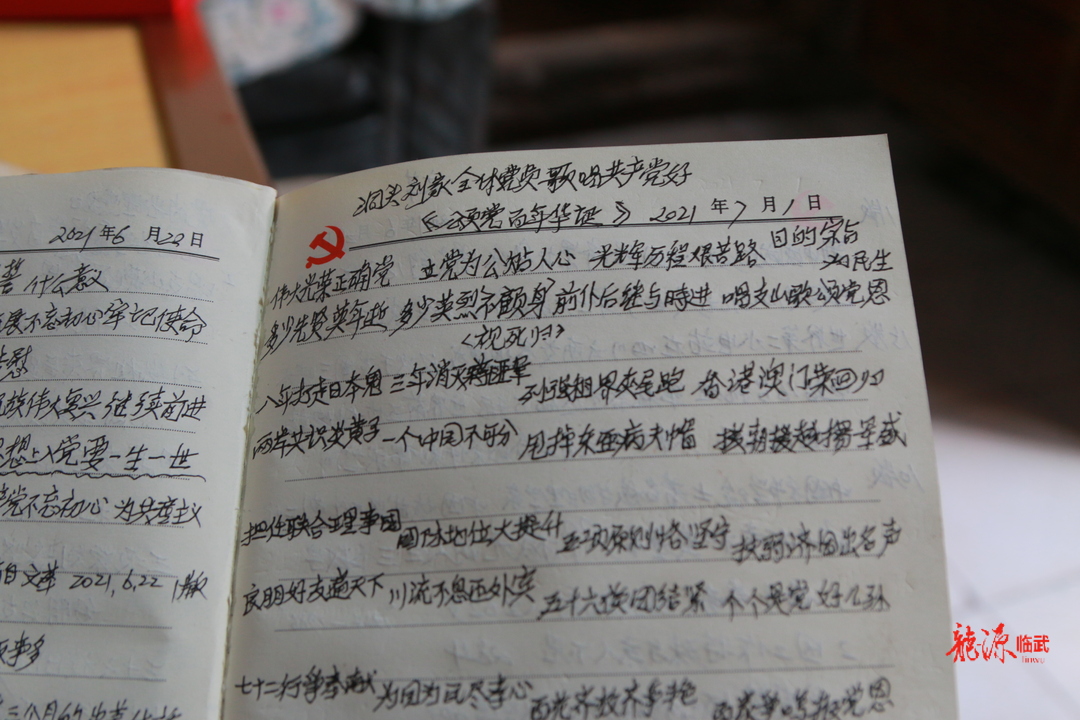 2021年6月22日
什么意义
展不忘初心牢记使命
慰
族伟大复兴继续前进
思想上入党要一生一世
党不忘初心 为共产主义
2021.6.22
事多
三个月的
刘家全体党员歌唱共产党好
《颂党百年华诞》 2021年7月1日
伟大光荣正确党 立党为公站人心 光辉历程艰苦路 目的宗旨为民生
多少先贤英年逝 多少英烈不顾身 前仆后继与时进 唱支山歌颂党恩
<视死归>
八年打走日本鬼 三年消灭蒋匪军 列强租界夹尾跑 香港澳门荣回归
两岸共识炎黄子 一个中国不可分 甩掉东亚病夫帽 援朝援越扬军威
担任联合理事国 国际地位大提升 五项原则恪坚守 扶弱济困出名声
良朋好友遍天下 川流不息还外宾 五十六族团结紧 个个是党好儿孙
七十二行争奉献 为国为民尽孝心 百花齐放齐争艳 党恩
龙源临武
linwu